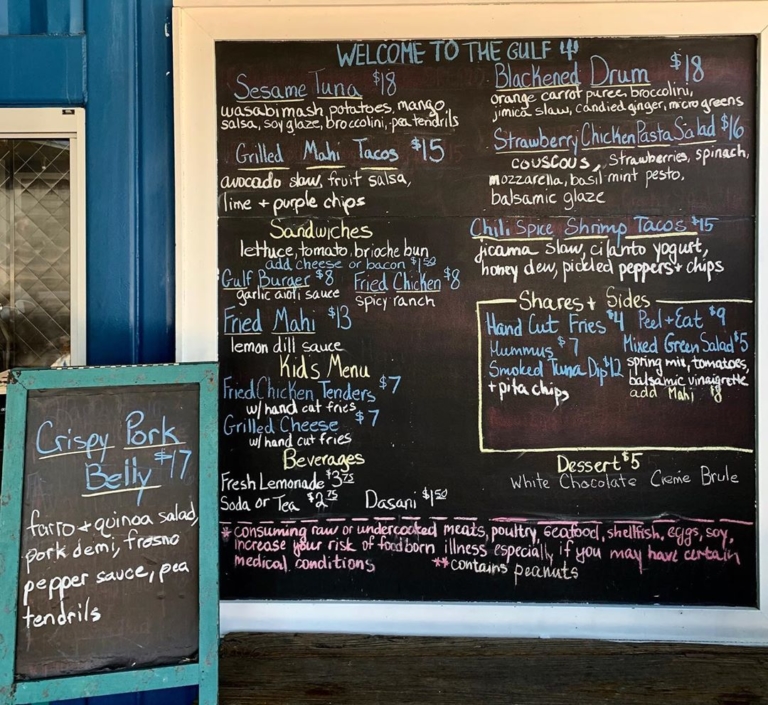 WELCOME TO THE GULF
Sesame Tuna $18
wasabi mash potatoes, mango,
salsa, soy glaze, broccolini, pea tendrils
Grilled Mahi Tacos $15
avocado slaw, fruit salsa,
lime + purple chips
Sandwiches
lettuce, tomato, brioche bun
add cheese or bacon $1.50
Gulf Burger $8
garlic aioli sauce
Fried Chicken $8
spicy ranch
Fried Mahi $13
lemon dill sauce
Kids Menu
Fried Chicken Tenders $7
w/ hand cut fries
Grilled Cheese $7
w/ hand cut fries
Beverages
Fresh Lemonade $3.75
Soda or Tea $2.75 Dasani $1.50
Blackened Drum $18
orange carrot puree, broccolini,
jimica slaw, candied ginger, micro greens
Strawberry Chicken Pasta Salad $16
couscous, strawberries, spinach,
mozzarella, basil mint pesto,
balsamic glaze
Chili Spice Shrimp Tacos $15
jicama slaw, cilanto yogurt,
honey dew, pickled peppers + chips
Shares + Sides
Hand Cut Fries $4
Hummus $7
Smoked Tuna Dip $12
+ pita chips
Peel + Eat $9
Mixed Green Salad $5
spring mix, tomatoes,
balsamic vinaigrette
add Mahi $8
Dessert $5
White Chocolate Creme Brule
* consuming raw or undercooked meats, poultry, seafood, shellfish, eggs, soy,
increase your risk of foodborn illness especially if you may have certain
medical conditions **contains peanuts
Crispy Pork
Belly $17
farro + quinoa salad,
pork demi, fresno
pepper sauce, pea
tendrils